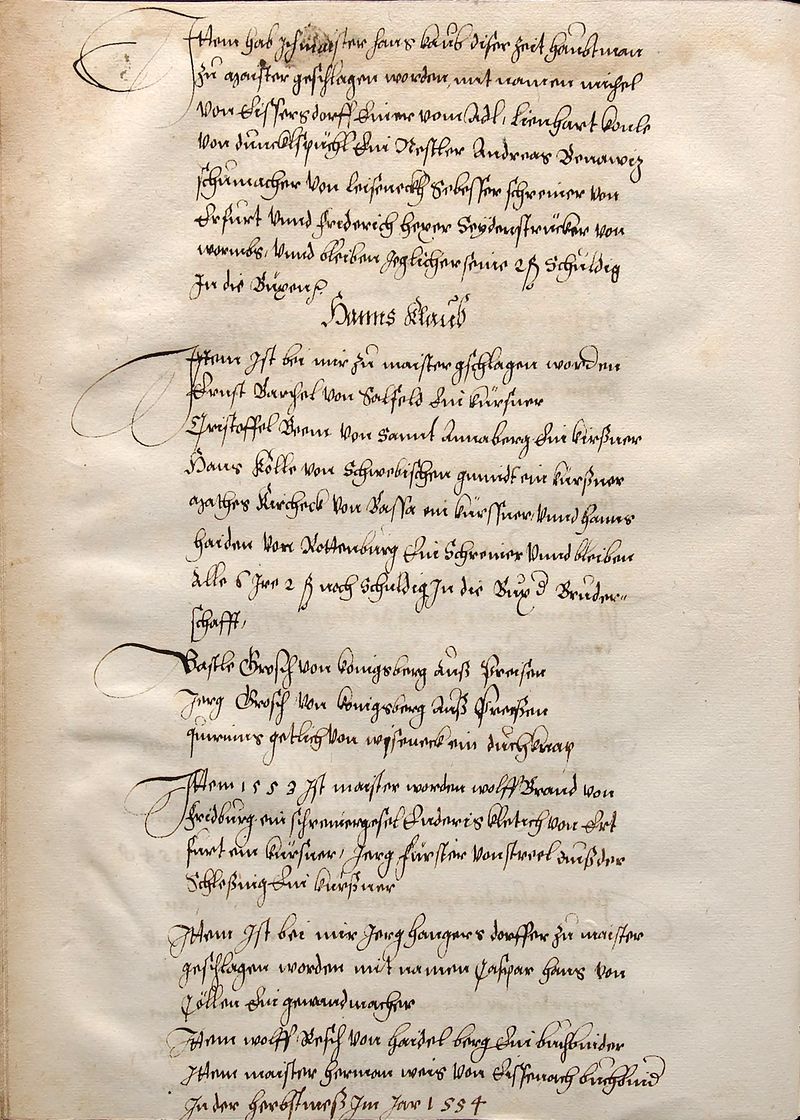 Ittem hab Ich maister hans klaub diser zeit haubtman
zu maister geschlagen worden, mit namen michel
von Eissersdorff Einer vom Adl, Lienhart konle
von duncklspüchl Ein Nestler Andreas Benawiz
schumacher von leiseneckh Sebesser schreiner von
Erfurt Vnnd friderich hexer Seydenstrücker von
wormbs, Vnnd bleiben Jeglicher seine 2 ß Schuldig
In die Büxen
Hanns Klaub
Ittem Ist bei mir zu maister gschlagen worden
Ernst Barchel von Salfeld Ein kürsner
Cristoffel Beem von Sannt Annaberg Ein kirßner
Hans Kölle von Schwebischen gmindt ein kürßner
Mathes Kircheck von Bassa ein kürssner, Vnnd hanns
haiden von Rottenburg Ein Schreiner Vnnd bleiben
Alle 6 Ire 2 ß noch Schuldig In die Bux d Bruder-
schafft,
Bastle Grosch von konigsberg auß Preisen
Jerg Grosch von konigsberg Auß Preißen
quirinus getlich von wiseneck ein duchknap
Ittem 1553 Ist maister worden wolff Brand von
fridburg ein schreinergesel Enderis kletich von Ert
furt ein kürsner, Jerg fürster von streel auß der
Schleßing Ein kurßner
Ittem Ist bei mir Jerg hangersdorffer zu maister
geschlagen worden mit namen Caspar hans von
Cöllen Ein gewandmacher
Ittem wolff Resch von haidelberg Ein buchbinder
Ittem maister herman weis von Eissenach buchbind
In der herbstmeß Im Jar 1554